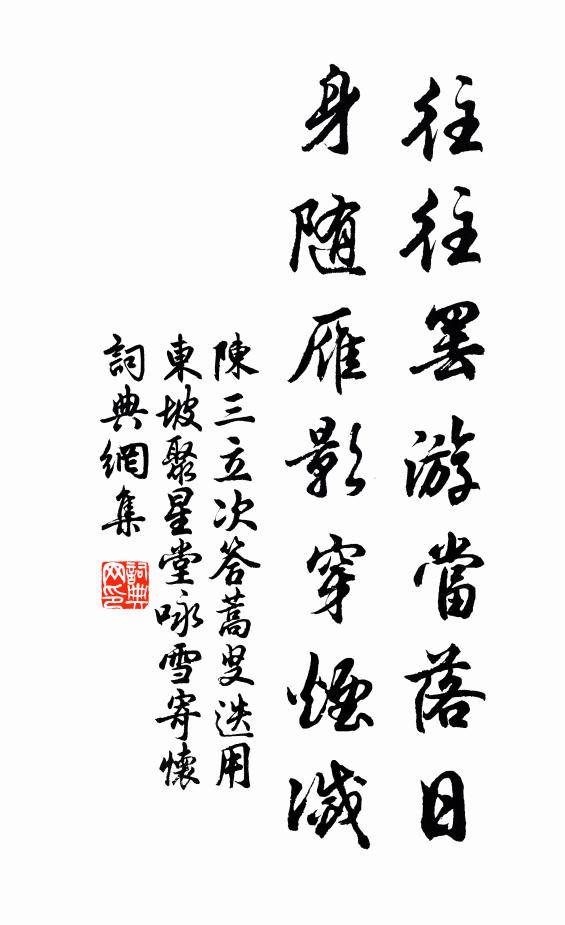 往往罢游當落日
身随雁影穿煙滅
陳三立次答蒿叟迭用
東坡聚星堂咏雪寄懷
詞典網集
詞典网印